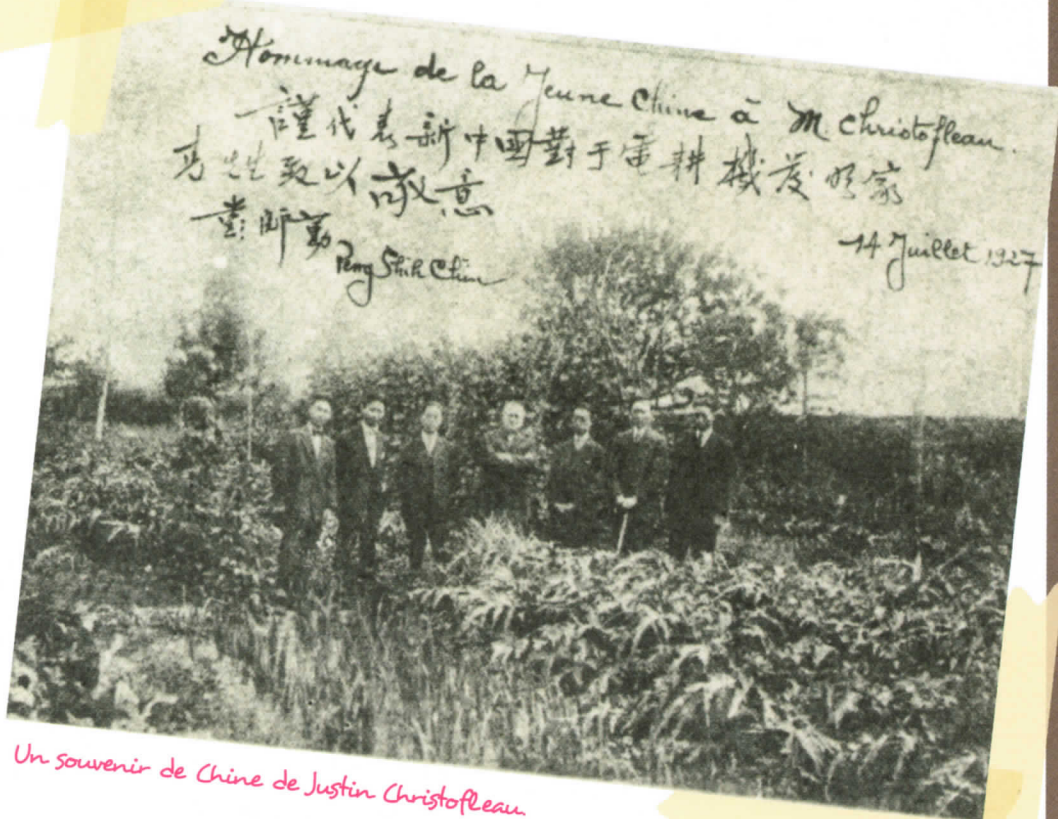 Hommage de la Jeune Chine à M. Christofleau.
謹代表新中國對于電耕機發明家
先生致以誠意
彭師勤
Peng Shih Chin
14 Juillet 1927
Un souvenir de Chine de Justin Christofleau